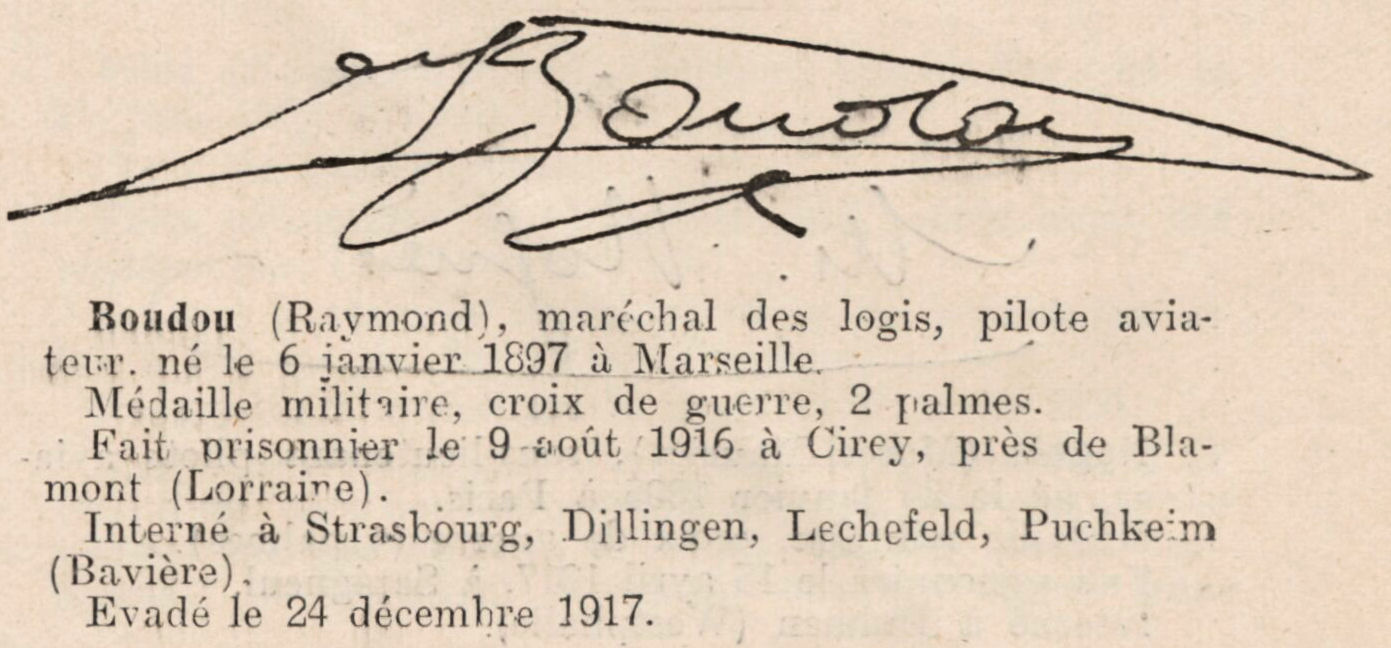 Boudou
Boudou (Raymond), maréchal des logis, pilote avia-
teur. né le 6 janvier 1897 à Marseille.
Médaille militaire, croix de guerre, 2 palmes.
Fait prisonnier le 9 août 1916 à Cirey, près de Bla-
mont (Lorraine).
Interné à Strasbourg, Dillingen, Lechefeld, Puchkeim
(Bavière).
Evadé le 24 décembre 1917.